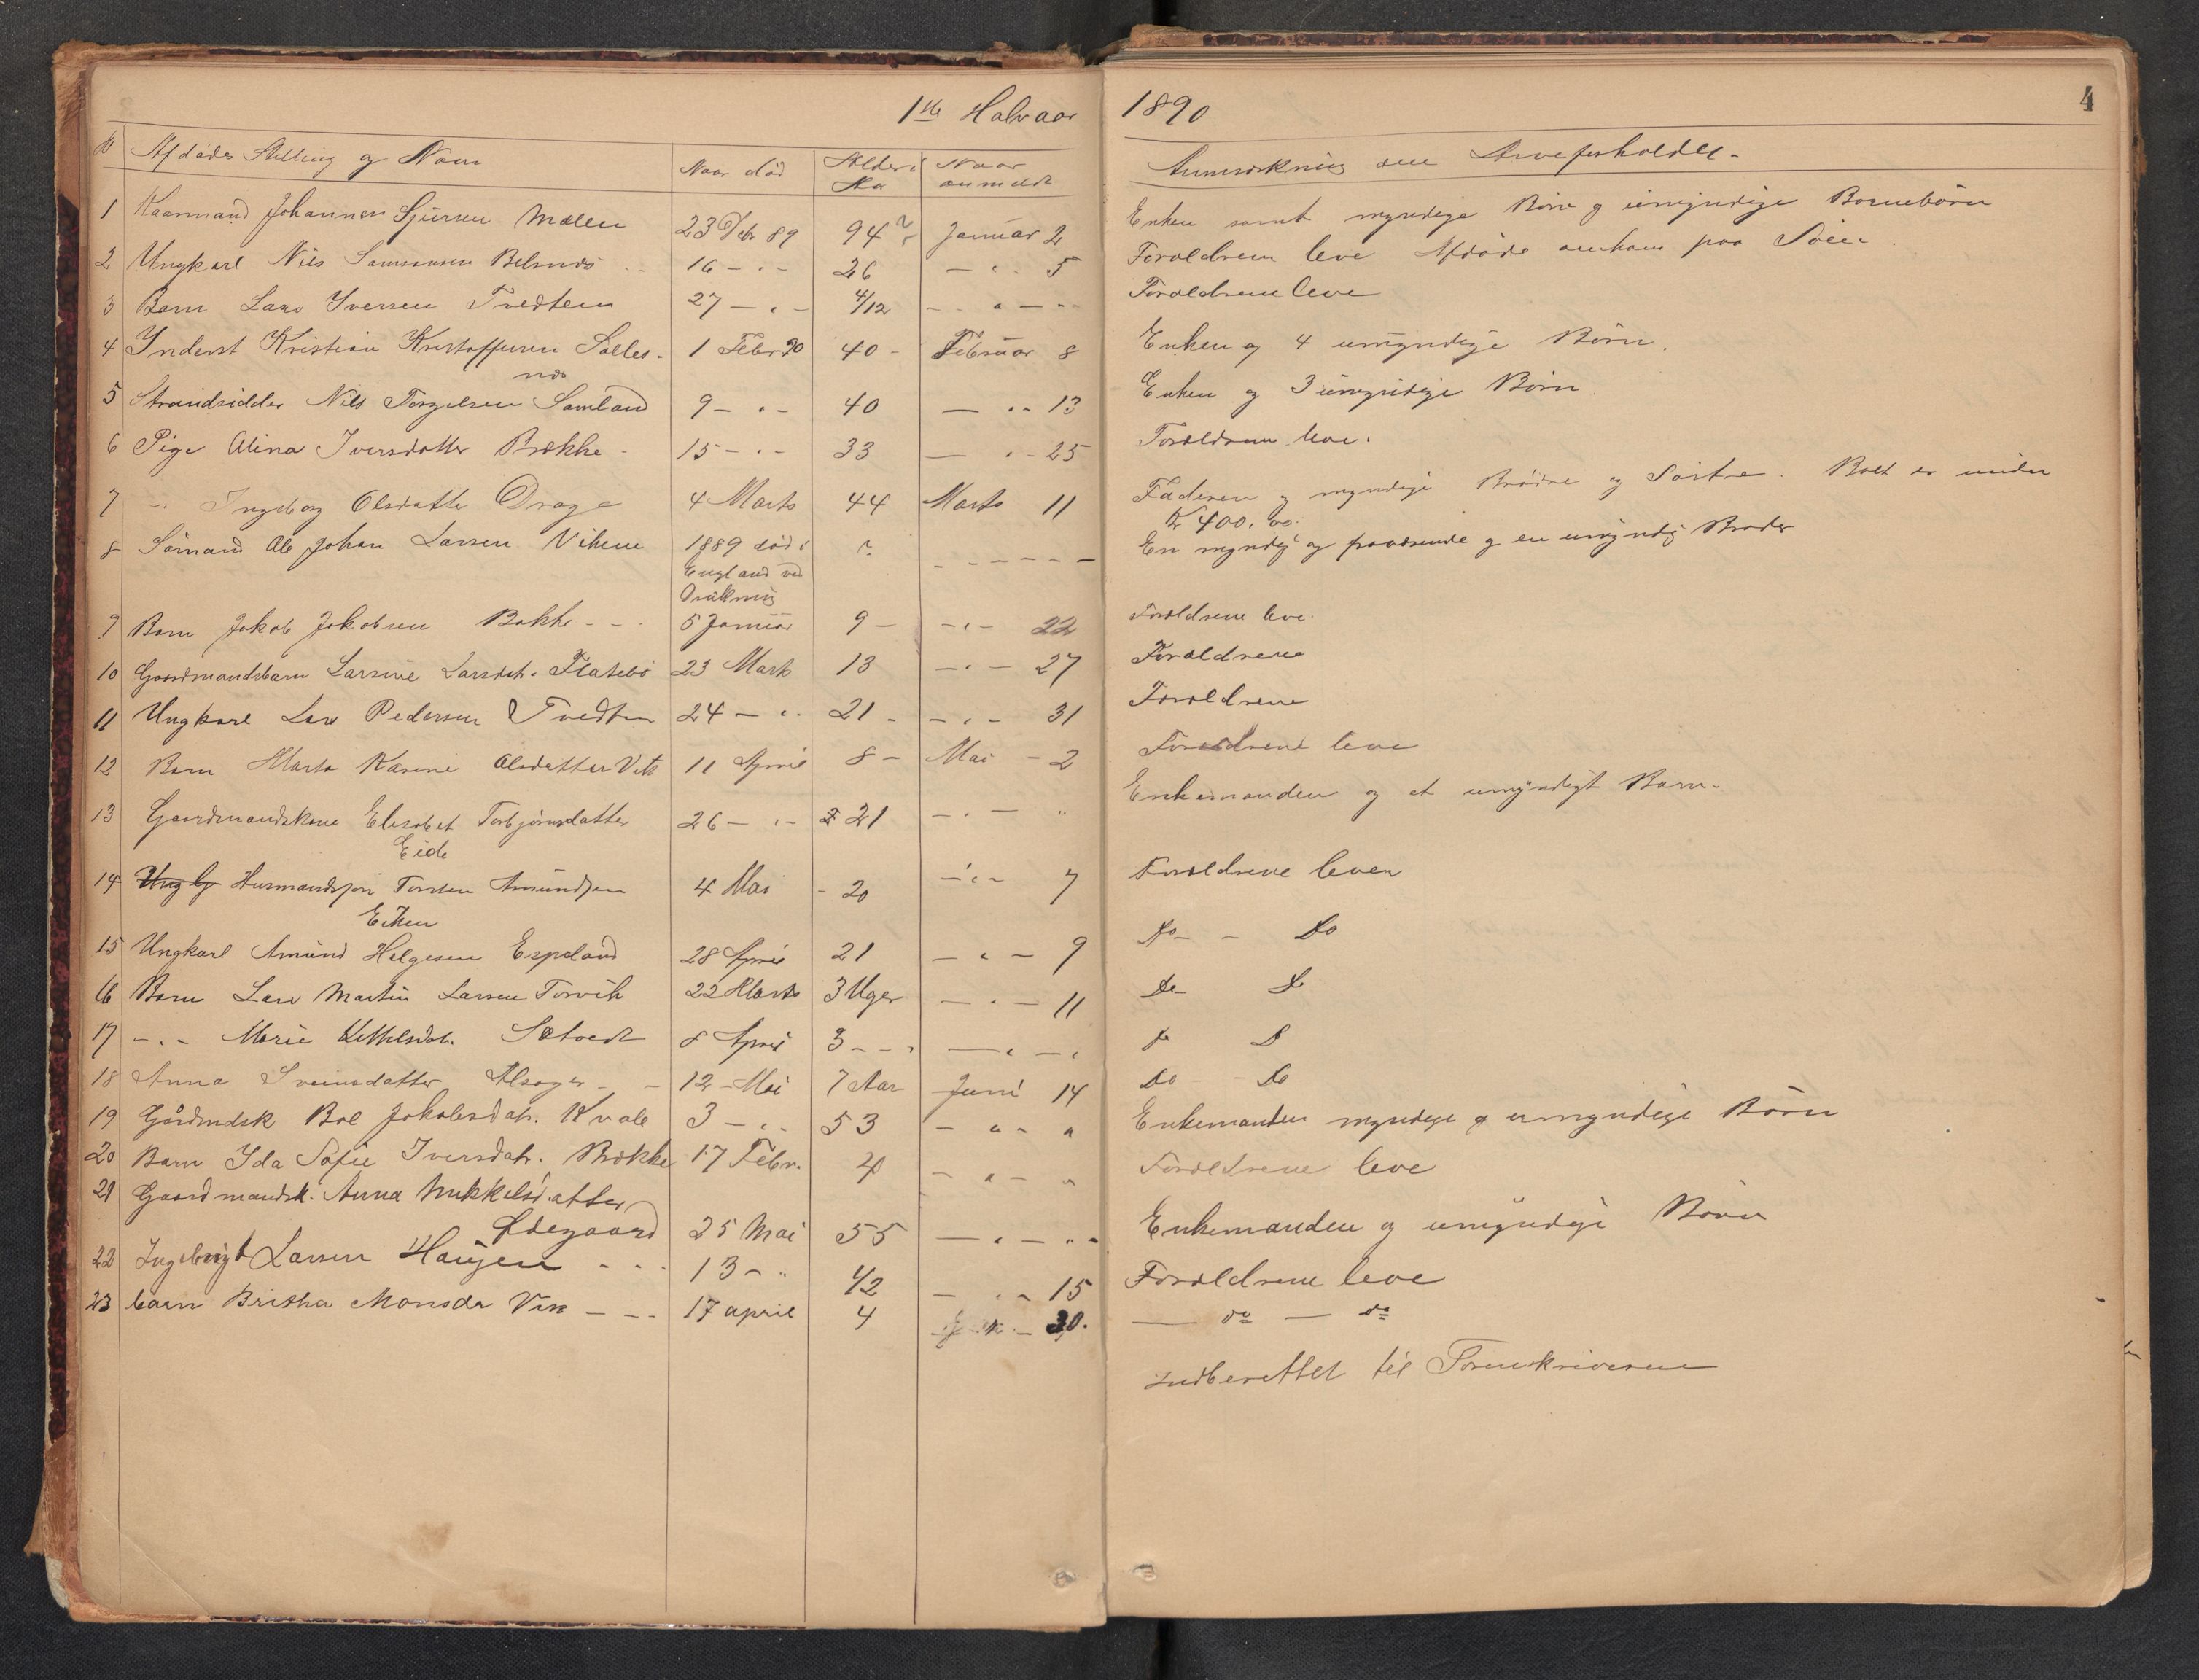 1ste Halvaar 1890
4
N Afdødes Stilling og Navn Naar død Alder i Aar Naar anmeldt Anmærkning om Arveforholdet.
1 Kaarmand Johannes Sjursen Mælen 23 Debr 89 94 Januar 2 Enken samt myndige Børn og umyndige Børnebørn
2 Ungkarl Nils Samsonsen 16 - " - 26 - " - 5 Forældrene leve Afdøde omkom paa Søen.
3 Barn Lars Iversen Tvedten 27 - " - 4/12 - " - " Forældrene leve
4 Inderst Kristian Kristoffersen Salles-
næs 1 Febr 90 40 - Februar 8 Enken og 4 umyndige Børn.
5 Strandsidder Nils Torgilsen Samland 9 - " - 40 - " - 13 Enken og 3 umyndige Børn
6 Pige Alina Iversdatter Brække - 15 - " - 33 - " - 25 Forældrene leve.
7 - " - Ingeborg Olsdatter Drage 4 Marts 44 Marts 11 Faderen og myndige Brødre og Søstre. Boet er under
Kr 400,00.
8 Sømand Ole Johan Larsen Vikene 1889 død i ? - - - - - En myndig og fraværende og en umyndig Broder
England ved
Drukning
9 Barn Jakob Jakobsen Bakke - - 5 Januar 9 - - " - 22 Forældrene leve.
10 Gaardmandsbarn Larsine Larsdtr. Flatebø 23 Marts 13 - " - 27 Forældrene
11 Ungkarl Lars Pedersen Tvedten 24 - " - 21 - - " - 31 Forældrene
12 Barn Marta Karine Olsdatter Vik 11 April 8 - Mai - 2 Forældrene leve
13 Gaardmandskone Elisabet Torbjørnsdatter 26 - " - 21 - " - " Enkemanden og et umyndigt Barn.
Eide
14 Ung Husmandssøn Torsten Amundsen 4 Mai - 20 - " - 7 Forældrene lever
Eiken
15 Ungkarl Amund Helgesen Espeland 28 April 21 - " - 9 Do - - Do
16 Barn Lars Martin Larsen Torvik 22 Marts 3 Uger - " - 11 Do - Do
17 - " - Marie Kettelsdtr. Sætvedt 8 April 3 - - " - " - " Do Do
18 Anna Sveinsdatter Alsager - - 12 - Mai 7 Aar Juni 14 Do - Do
19 Gårdmdsk Boe Jakobsdatr. Kvale 3 - " - 53 - " - " Enkemanden myndige og umyndige Børn
20 Barn Ida Sofie Iversdatr. Brække 17 Febr. 4 - " - " Forældrene leve
21 Gaardmandsk. Anna Mikkelsdatter
Ødegaard 25 Mai 55 - " - " - Enkemanden og umyndige Børn
22 Ingebrigt Larsen Haugen - - - 13 - " 1/2 - " - 15 Forældrene leve
23 barn Britha Monsdr Vik - - - 17 april 4 - " - 30. - do - do
Indberettet til Sorenskriveren